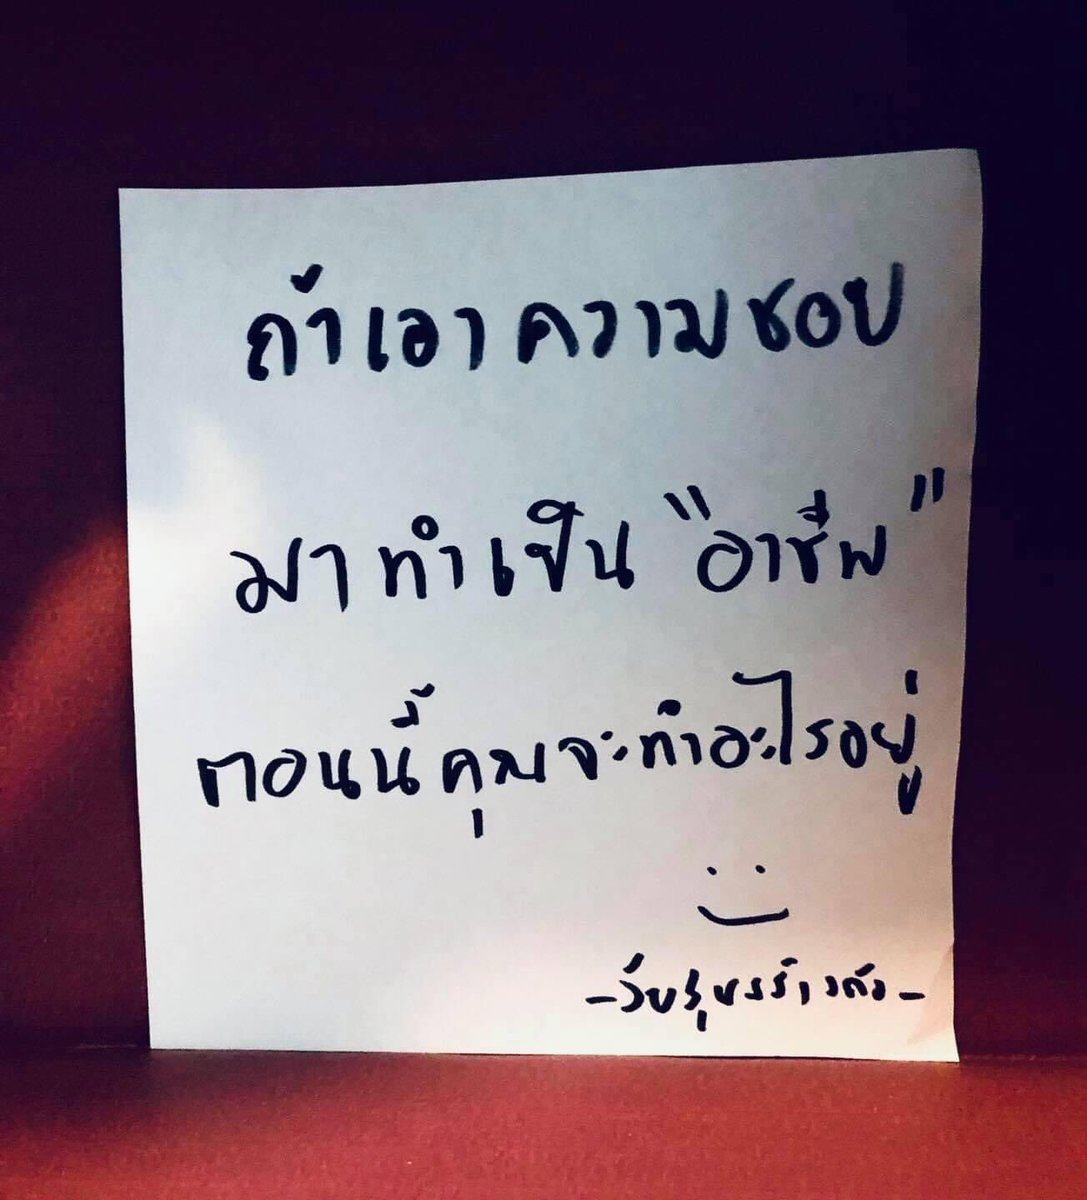 ถ้าเอาความชอบ
มาทำเป็น "อาชีพ"
ตอนนี้คุณจะทำอะไรอยู่
-วัยรุ่นสร้างตัว-